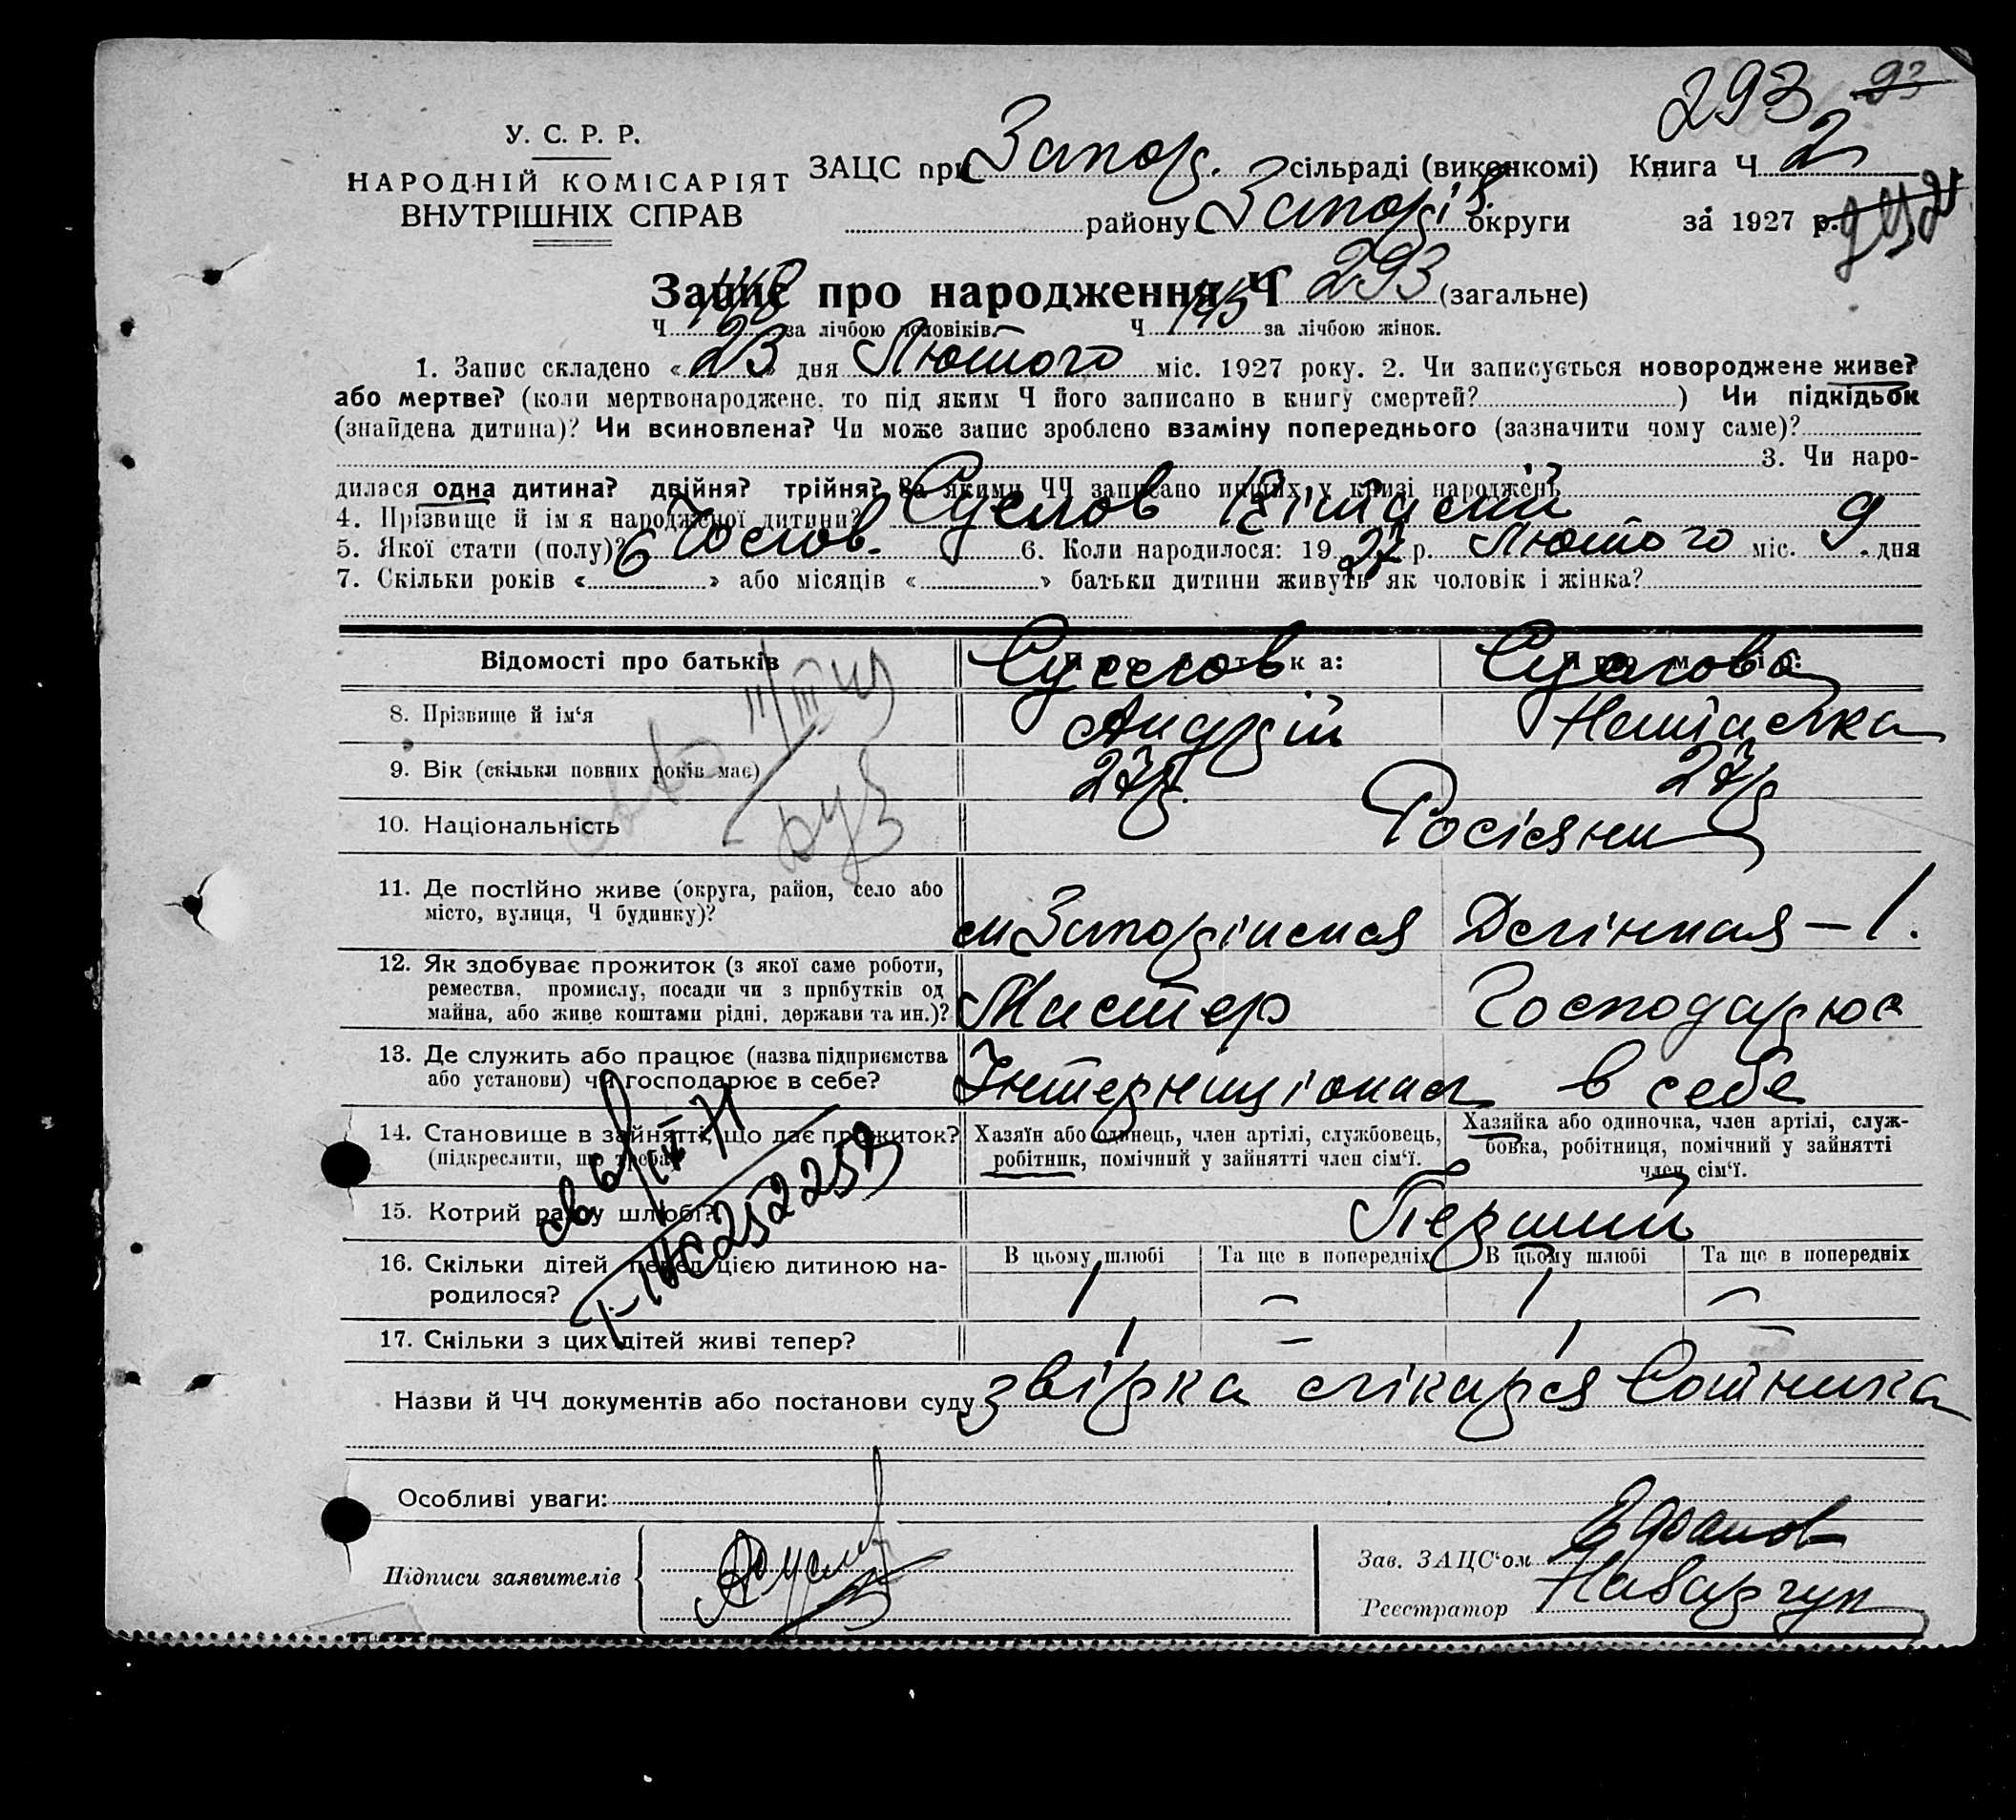 293 93
У. С. Р. Р.
НАРОДНІЙ КОМІСАРІЯТ
ВНУТРІШНІХ СПРАВ
ЗАЦС при Запор. сільраді (виконкомі) Книга Ч 2
району Запоріз. округи за 1927 р.
Запис про народження Ч 293 (загальне)
Ч 148 за лічбою чоловіків. Ч 145 за лічбою жінок.
1. Запис складено « 23 » дня Лютого міс. 1927 року. 2. Чи записується новороджене живе?
або мертве? (коли мертвонароджене, то під яким Ч його записано в книгу смертей? ) Чи підкідьок
(знайдена дитина)? Чи всиновлена? Чи може запис зроблено взаміну попереднього (зазначити чому саме)?
3. Чи наро-
дилася одна дитина? двійня? трійня? За якими ЧЧ записано инших у книзі народжень
4. Прізвище й ім'я народженої дитини? Суслов Віталій
5. Якої стати (полу)? Чолов. 6. Коли народилося: 19 27 р. Лютого міс. 9 дня
7. Скільки років « » або місяців « » батьки дитини живуть як чоловік і жінка?
Відомості про батьків Про батька: Про матір:
8. Прізвище й ім'я Суслов Андрій Суслова Наталка
9. Вік (скільки повних років має) 27р. 27р
10. Національність Росіяни
11. Де постійно живе (округа, район, село або
місто, вулиця, Ч будинку)?
м Запоріжжя Долінная – 1.
12. Як здобуває прожиток (з якої саме роботи,
ремества, промислу, посади чи з прибутків од
майна, або живе коштами рідні, держави та ин.)?
Мастер Господарює
13. Де служить або працює (назва підприємства
або установи) чи господарює в себе?
Інтернаціонал в себе
14. Становище в зайнятті, що дає прожиток?
(підкреслити, що треба)
Хазяїн або одинець, член артілі, службовець,
робітник, помічний у зайнятті член сім'ї.
Хазяйка або одиночка, член артілі, служ-
бовка, робітниця, помічний у зайнятті
член сім'ї.
15. Котрий раз у шлюбі? Перший
16. Скільки дітей перед цією дитиною на-
родилося?
В цьому шлюбі Та ще в попередніх В цьому шлюбі Та ще в попередніх
1 – 1 –
17. Скільки з цих дітей живі тепер? 1 – 1 –
Назви й ЧЧ документів або постанови суду звірка лікаря Сотника
Особливі уваги:
Підписи заявителів
Зав. ЗАЦС'ом
Реєстратор